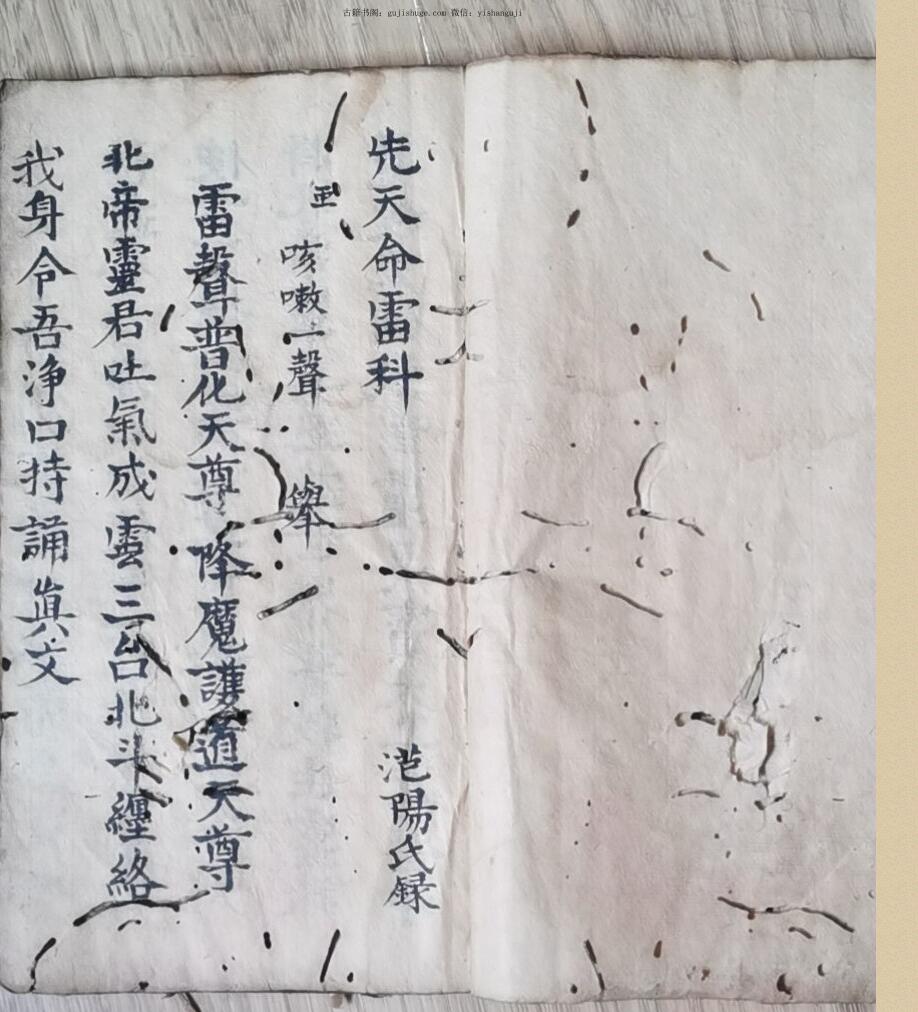 古籍书阁：gujishuge.com 微信：yishanguji
先天命雷科
范陽氏録
咳嗽一聲 舉
雷聲普化天尊 降魔護道天尊
北帝靈君吐氣成雲三台北斗纏絡
我身令吾净口持誦眞文